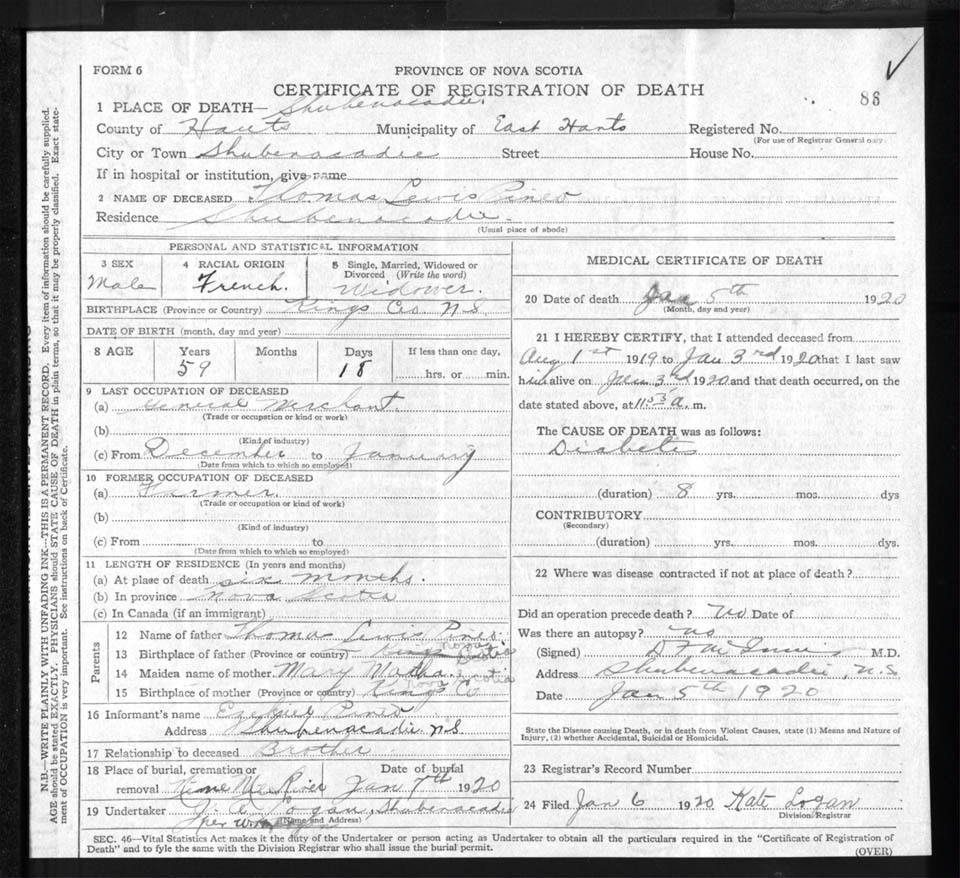 FORM 6
PROVINCE OF NOVA SCOTIA
CERTIFICATE OF REGISTRATION OF DEATH
86
1 PLACE OF DEATH— Shubenacadie.
County of Hants Municipality of East Hants Registered No.
(For use of Registrar General only)
City or Town Shubenacadie Street House No.
If in hospital or institution, give name
2 NAME OF DECEASED Thomas Lewis Pineo
Residence Shubenacadie.
(Usual place of abode)
PERSONAL AND STATISTICAL INFORMATION
3 SEX 4 RACIAL ORIGIN 5 Single, Married, Widowed or
Divorced (Write the word)
Male French. Widower.
BIRTHPLACE (Province or Country) Kings Co. N.S
DATE OF BIRTH (month, day and year)
8 AGE Years Months Days If less than one day,
59 18 hrs. or min.
9 LAST OCCUPATION OF DECEASED
(a) General Merchant.
(Trade or occupation or kind or work)
(b)
(Kind of industry)
(c) From December to January
(Date from which to which so employed)
10 FORMER OCCUPATION OF DECEASED
(a) Farmer.
(Trade or occupation or kind of work)
(b)
(Kind of industry)
(c) From to
(Date from which to which so employed)
11 LENGTH OF RESIDENCE (In years and months)
(a) At place of death six months.
(b) In province Nova Scotia
(c) In Canada (if an immigrant)
Parents
12 Name of father Thomas Lewis Pineo
13 Birthplace of father (Province or country) Kings Nova Scotia
14 Maiden name of mother. Mary
15 Birthplace of mother (Province or country) Kings Co
16 Informant's name Ezekiel Pineo
Address Shubenacadie N.S.
17 Relationship to deceased Brother
18 Place of burial, cremation or Date of burial
removal River Jan 7th 1920
19 Undertaker Logan, Shubenacadie
(Name and Address)
per
MEDICAL CERTIFICATE OF DEATH
20 Date of death Jan 5th 1920
(Month, day and year)
21 I HEREBY CERTIFY, that I attended deceased from
Aug 1st 1919 to Jan 3rd 1920 that I last saw
him alive on Jan 3rd 1920 and that death occurred, on the
date stated above, at 11.53 a. m.
The CAUSE OF DEATH was as follows:
Diabetes
(duration) 8 yrs. mos. dys
CONTRIBUTORY
(Secondary)
(duration) yrs. mos. dys.
22 Where was disease contracted if not at place of death?
Did an operation precede death? No Date of
Was there an autopsy? no
(Signed) M.D.
Address Shubenacadie, N.S
Date Jan 5th 1920
State the Disease causing Death, or in death from Violent Causes, state (1) Means and Nature of
Injury, (2) whether Accidental, Suicidal or Homicidal.
23 Registrar's Record Number
24 Filed Jan 6 1920 Kate Logan
Division Registrar
SEC. 46—Vital Statistics Act makes it the duty of the Undertaker or person acting as Undertaker to obtain all the particulars required in the "Certificate of Registration of
Death" and to fyle the same with the Division Registrar who shall issue the burial permit.
(OVER)
N.B.—WRITE PLAINLY WITH UNFADING INK—THIS IS A PERMANENT RECORD. Every item of information should be carefully supplied.
AGE should be stated EXACTLY. PHYSICIANS should STATE CAUSE OF DEATH in plain terms, so that it may be properly classified. Exact state-
ment of OCCUPATION is very important. See instructions on back of Certificate.